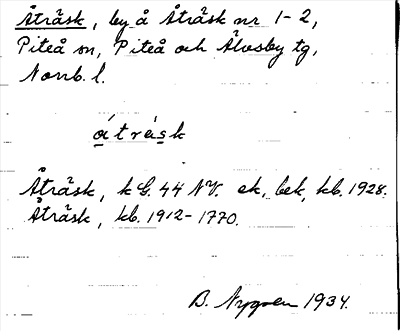 Åträsk, by å Åträsk nr 1-2,
Piteå sn, Piteå och Älvsby tg,
Norrb. l.
åtrásk
Åträsk, k G. 44 NV. ek, bek, kb. 1928.
Åträsk, kb. 1912-1770.
B. Nygren 1934.